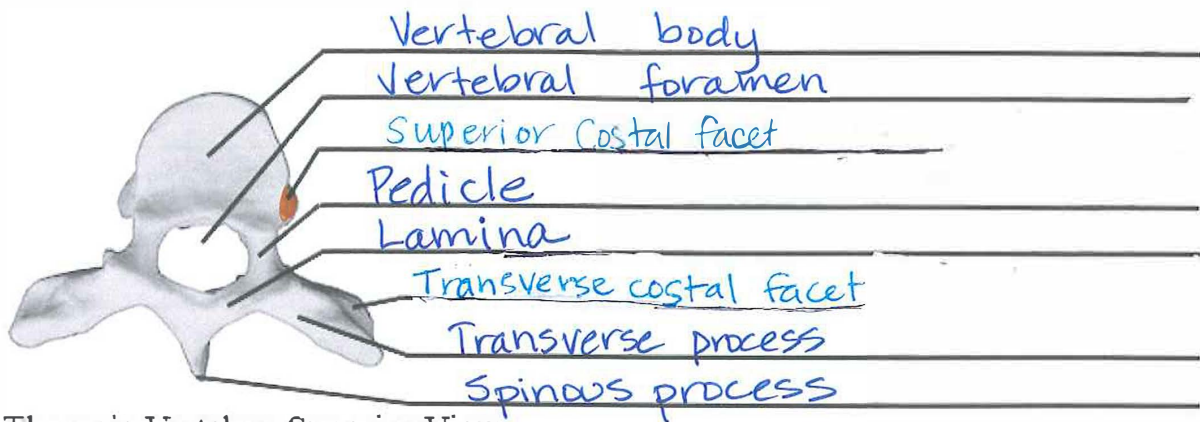 Vertebral body
Vertebral foramen
Superior Costal facet
Pedicle
Lamina
Transverse costal facet
Transverse process
Spinous process
Thoracic Vertebra Superior View